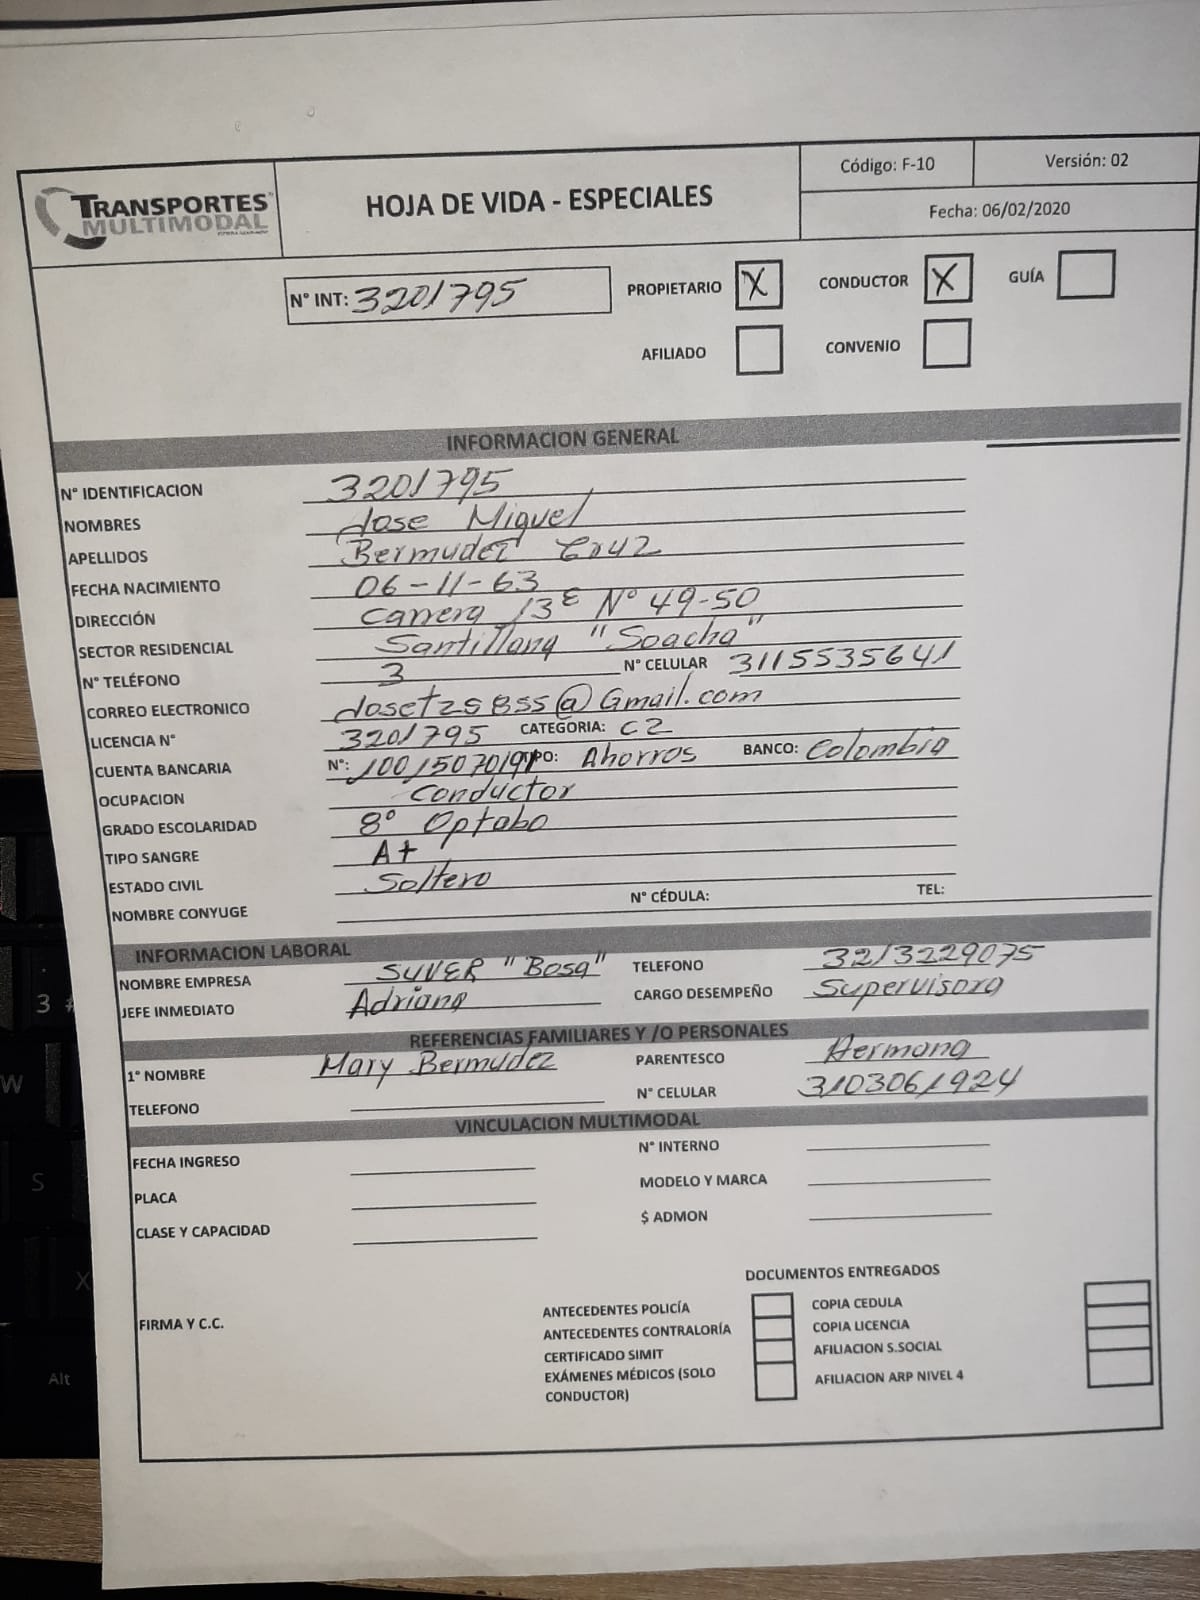 TRANSPORTES MULTIMODAL
HOJA DE VIDA - ESPECIALES
Código: F-10 Versión: 02
Fecha: 06/02/2020
N° INT: 3201795 PROPIETARIO X CONDUCTOR X GUÍA
AFILIADO CONVENIO
INFORMACION GENERAL
N° IDENTIFICACION 3201795
NOMBRES Jose Miguel
APELLIDOS Bermudez Cruz
FECHA NACIMIENTO 06-11-63
DIRECCIÓN Carrera 13E N° 49-50
SECTOR RESIDENCIAL Santillana "Soacha"
N° TELÉFONO 3 N° CELULAR 3115535641
CORREO ELECTRONICO @Gmail.com
LICENCIA N° 3201795 CATEGORIA: C2
CUENTA BANCARIA N°: TIPO: Ahorros BANCO: Colombia
OCUPACION Conductor
GRADO ESCOLARIDAD 8° Optabo
TIPO SANGRE A+
ESTADO CIVIL Soltero
NOMBRE CONYUGE N° CÉDULA: TEL:
INFORMACION LABORAL
NOMBRE EMPRESA SUVER "Bosa" TELEFONO 3213229075
JEFE INMEDIATO Adriana CARGO DESEMPEÑO Supervisora
REFERENCIAS FAMILIARES Y /O PERSONALES
1° NOMBRE Mary Bermudez PARENTESCO Hermana
TELEFONO N° CELULAR 3103061924
VINCULACION MULTIMODAL
FECHA INGRESO N° INTERNO
PLACA MODELO Y MARCA
CLASE Y CAPACIDAD $ ADMON
DOCUMENTOS ENTREGADOS
FIRMA Y C.C.
ANTECEDENTES POLICÍA COPIA CEDULA
ANTECEDENTES CONTRALORÍA COPIA LICENCIA
CERTIFICADO SIMIT AFILIACION S.SOCIAL
EXÁMENES MÉDICOS (SOLO CONDUCTOR) AFILIACION ARP NIVEL 4
3 #
W
S
X
Alt